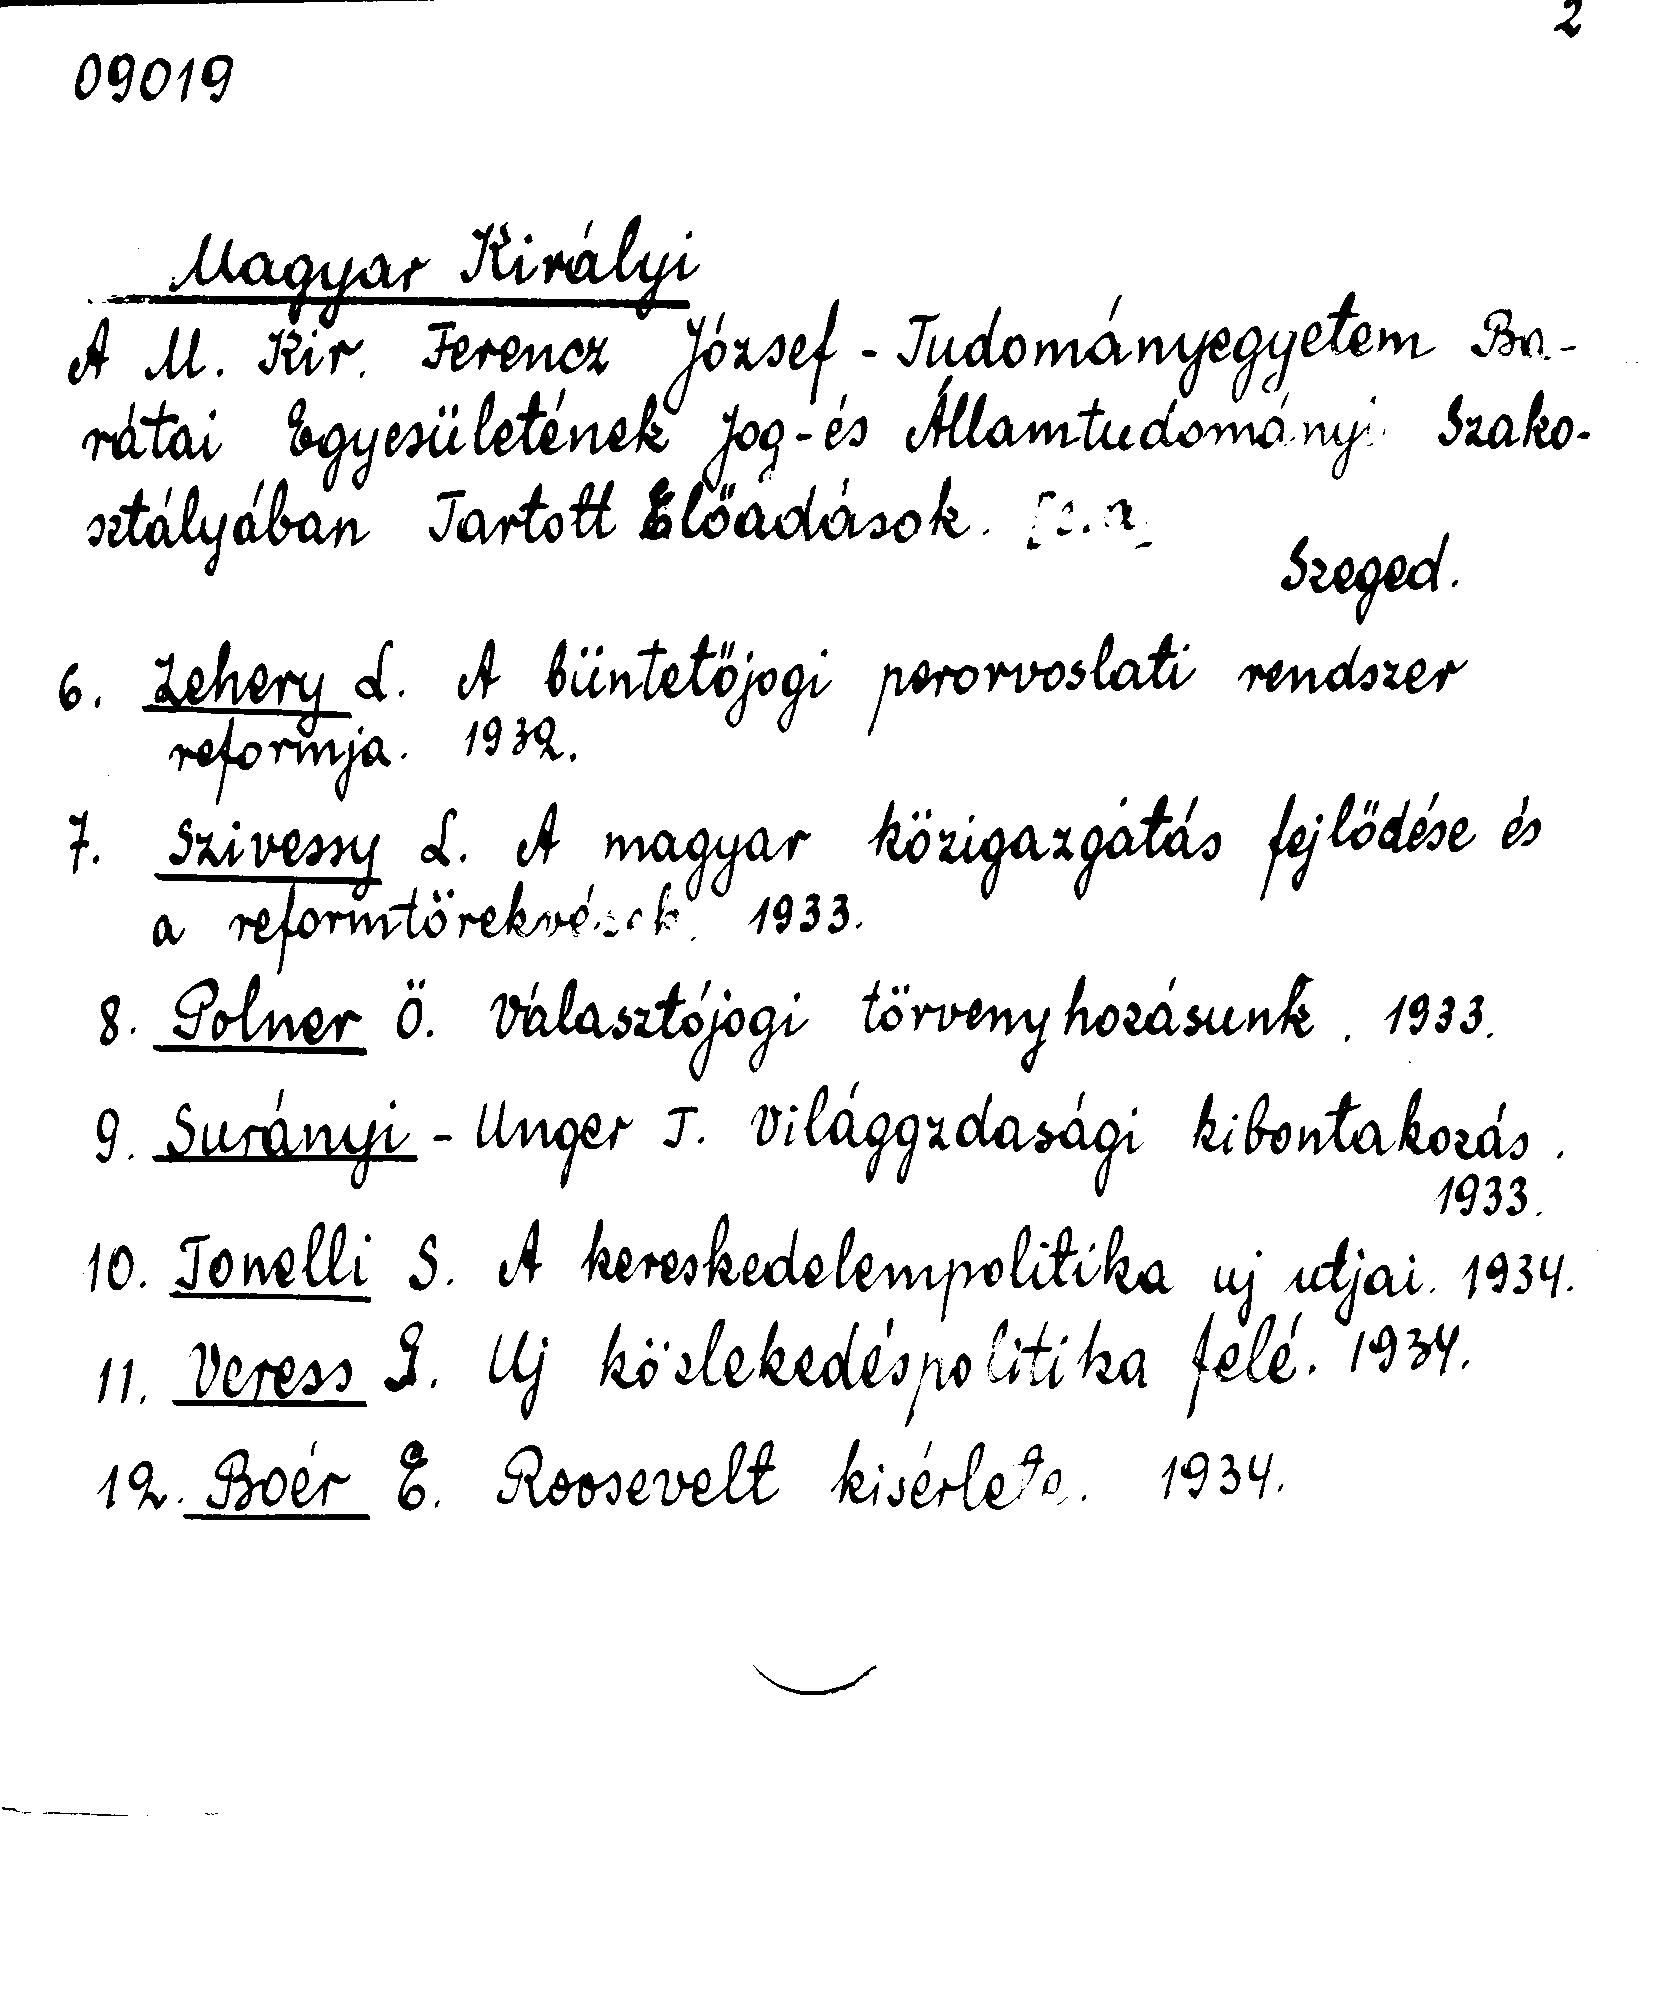 2
09019
Magyar Királyi
A M. Kir. Ferencz József - Tudományegyetem Ba-
rátai Egyesületének Jog-és Államtudományi Szako-
sztályában Tartott Előadások.
Szeged.
6. Zehery L. A büntetőjogi perorvoslati rendszer
reformja. 1932.
7. Szivessy L. A magyar közigazgátás fejlődése és
a reformtörekvések. 1933.
8. Polner Ö. Választójogi törvenyhozásunk. 1933.
9. Surányi - Unger T. Világgzdasági kibontakozás.
1933.
10. Tonelli S. A kereskedelempolitika uj utjai. 1934.
11. Veress G. Uj közlekedéspolitika felé. 1934.
12. Boér E. Roosevelt kisérlete. 1934.